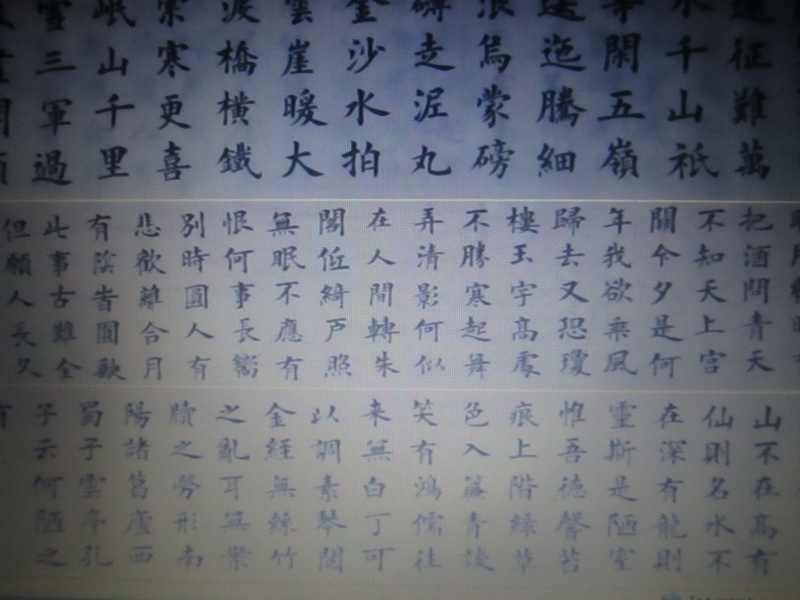 遠征難萬
水千山祇
等閑五嶺
逶迤騰細
浪烏蒙磅
礴走泥丸
金沙水拍
雲崖暖大
渡橋橫鐵
索寒更喜
岷山千里
雪三軍過
把酒問青天
不知天上宮
闕今夕是何
年我欲乘風
歸去又恐瓊
樓玉宇高處
不勝寒起舞
弄清影何似
在人間轉朱
閣低綺戶照
無眠不應有
恨何事長嚮
別時圓人有
悲歡離合月
有陰晴圓缺
此事古難全
但願人長久
山不在高有
仙則名水不
在深有龍則
靈斯是陋室
惟吾德馨苔
痕上階綠草
色入簾青談
笑有鴻儒往
来無白丁可
以調素琴閱
金經無絲竹
之亂耳無案
牘之勞形南
陽諸葛廬西
蜀子雲亭孔
子云何陋之
有